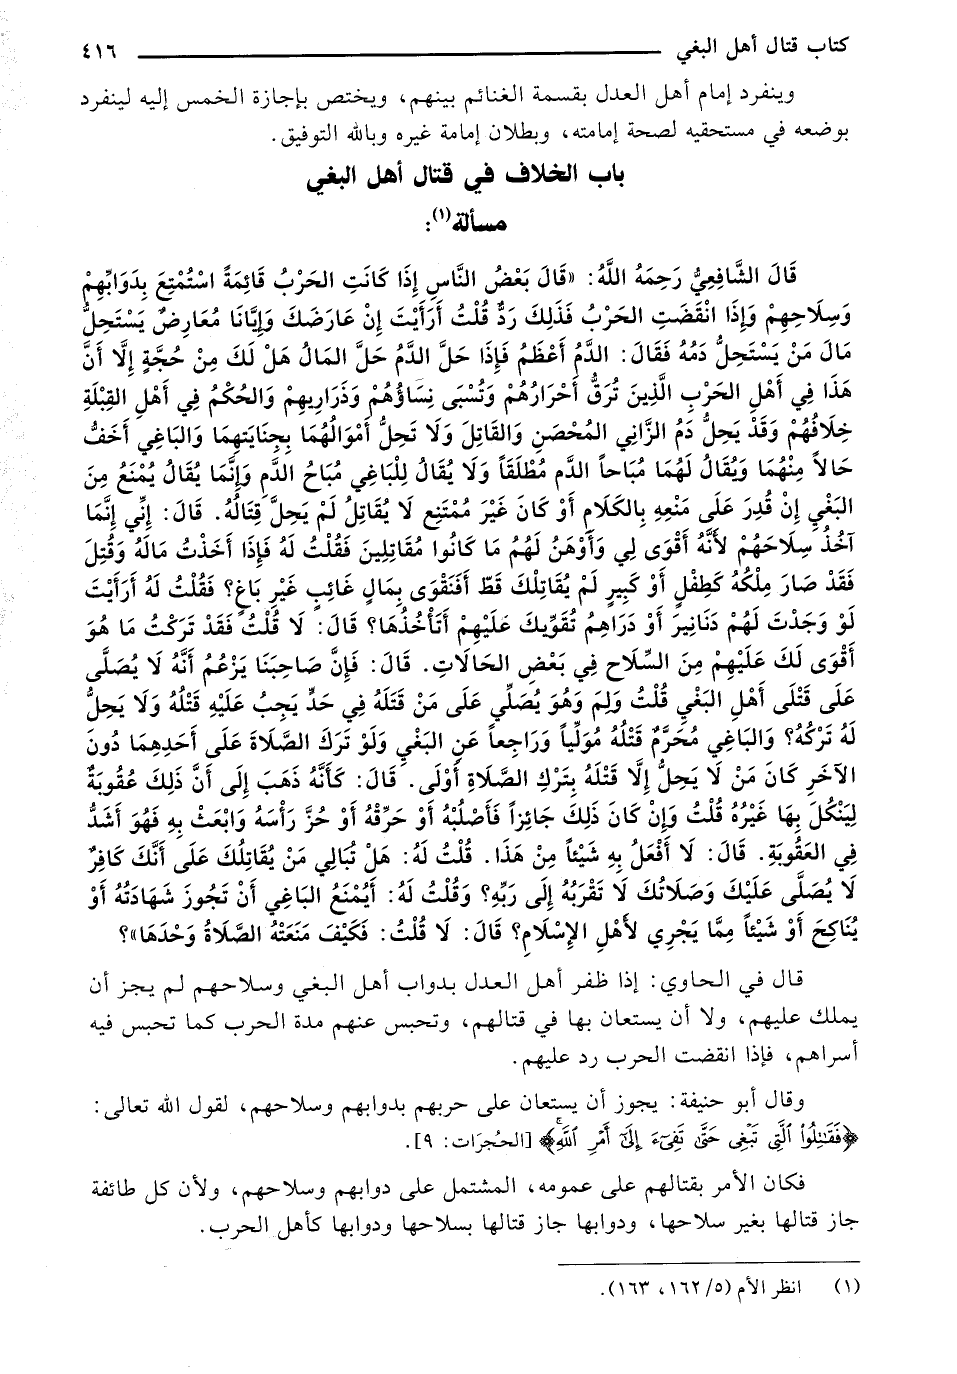 كتاب قتال أهل البغي ٤١٦
وينفرد إمام أهل العدل بقسمة الغنائم بينهم، ويختص بإجازة الخمس إليه لينفرد
بوضعه في مستحقيه لصحة إمامته، وبطلان إمامة غيره وبالله التوفيق.
باب الخلاف في قتال أهل البغي
مسألة(١):
قَالَ الشَّافِعِيُّ رَحِمَهُ اللَّهُ: «قَالَ بَعْضُ النَّاسِ إِذَا كَانَتِ الحَرْبُ قَائِمَةً اسْتُمْتِعَ بِدَوَابِّهِمْ
وَسِلَاحِهِمْ وَإِذَا انْقَضَتِ الحَرْبُ فَذَلِكَ رَدٌّ قُلْتُ أَرَأَيْتَ إِنْ عَارَضَكَ وَإِيَّانَا مُعَارِضٌ يَسْتَحِلُّ
مَالَ مَنْ يَسْتَحِلُّ دَمُهُ فَقَالَ: الدَّمُ أَعْظَمُ فَإِذَا حَلَّ الدَّمُ حَلَّ المَالُ هَلْ لَكَ مِنْ حُجَّةٍ إِلَّا أَنَّ
هَذَا فِي أَهْلِ الحَرْبِ الَّذِينَ تُرَقُّ أَحْرَارُهُمْ وَتُسْبَى نِسَاؤُهُمْ وَذَرَارِيهِمْ وَالحُكْمُ فِي أَهْلِ القِبْلَةِ
خِلَافُهُمْ وَقَدْ يَحِلُّ دَمُ الزَّانِي المُحْصَنِ وَالقَاتِلَ وَلَا تَحِلُّ أَمْوَالُهُمَا بِجِنَايَتِهِمَا وَالبَاغِي أَخَفُّ
حَالاً مِنْهُمَا وَيُقَالُ لَهُمَا مُبَاحاً الدَّمِ مُطْلَقَاً وَلَا يُقَالُ لِلْبَاغِي مُبَاحُ الدَّمِ وَإِنَّمَا يُقَالُ يُمْنَعُ مِنَ
البَغْيِ إِنْ قُدِرَ عَلَى مَنْعِهِ بِالكَلَامِ أَوْ كَانَ غَيْرَ مُمْتَنِعٍ لَا يُقَاتِلُ لَمْ يَحِلَّ قِتَالُهُ. قَالَ: إِنِّي إِنَّمَا
آخُذُ سِلَاحَهُمْ لأَنَّهُ أَقْوَى لِي وَأَوْهَنُ لَهُمْ مَا كَانُوا مُقَاتِلِينَ فَقُلْتُ لَهُ فَإِذَا أَخَذْتُ مَالَهُ وَقُتِلَ
فَقَدْ صَارَ مِلْكُهُ كَطِفْلٍ أَوْ كَبِيرٍ لَمْ يُقَاتِلْكَ قَطّ أَفَتَقْوَى بِمَالِ غَائِبٍ غَيْرِ بَاغٍ؟ فَقُلْتُ لَهُ أَرَأَيْتَ
لَوْ وَجَدْتَ لَهُمْ دَنَانِيرَ أَوْ دَرَاهِمُ تُقَوِّيكَ عَلَيْهِمْ أَتَأْخُذُهَا؟ قَالَ: لَا قُلْتُ فَقَدْ تَرَكْتُ مَا هُوَ
أَقْوَى لَكَ عَلَيْهِمْ مِنَ السِّلَاحِ فِي بَعْضِ الحَالَاتِ. قَالَ: فَإِنَّ صَاحِبَنَا يَزْعُمُ أَنَّهُ لَا يُصَلَّى
عَلَى قَتْلَى أَهْلِ البَغْيِ قُلْتُ وَلِمَ وَهُوَ يُصَلِّي عَلَى مَنْ قَتَلَهُ فِي حَدٍّ يَجِبُ عَلَيْهِ قَتْلُهُ وَلَا يَحِلُّ
لَهُ تَرْكُهُ؟ وَالبَاغِي مُحَرَّمٌ قَتْلُهُ مُوَلِّياً وَرَاجِعاً عَنِ البَغْيِ وَلَوْ تَرَكَ الصَّلَاةَ عَلَى أَحَدِهِمَا دُونَ
الآخَرِ كَانَ مَنْ لَا يَحِلُّ إِلَّا قَتْلَهُ بِتَرْكِ الصَّلَاةِ أَوْلَى. قَالَ: كَأَنَّهُ ذَهَبَ إِلَى أَنَّ ذَلِكَ عُقُوبَةٌ
لِيَنْكُلَ بِهَا غَيْرُهُ قُلْتُ وَإِنْ كَانَ ذَلِكَ جَائِزاً فَأَصْلُبْهُ أَوْ حَرِّقْهُ أَوْ حُزَّ رَأْسَهُ وَابْعَثْ بِهِ فَهُوَ أَشَدُّ
فِي العَقُوبَةِ. قَالَ: لَا أَفْعَلُ بِهِ شَيْئاً مِنْ هَذَا. قُلْتُ لَهُ: هَلْ تُبَالِي مَنْ يُقَاتِلُكَ عَلَى أَنَّكَ كَافِرٌ
لَا يُصَلَّى عَلَيْكَ وَصَلَاتُكَ لَا تَقْرَبُهُ إِلَى رَبِّهِ؟ وَقُلْتُ لَهُ: أَيُمْنَعُ البَاغِي أَنْ تَجُوزَ شَهَادَتُهُ أَوْ
يُنَاكِحَ أَوْ شَيْئاً مِمَّا يَجْرِي لأَهْلِ الإِسْلَامِ؟ قَالَ: لَا قُلْتُ: فَكَيْفَ مَنَعَتْهُ الصَّلَاةُ وَحْدَهَا»؟
قال في الحاوي: إذا ظفر أهل العدل بدواب أهل البغي وسلاحهم لم يجز أن
يملك عليهم، ولا أن يستعان بها في قتالهم، وتحبس عنهم مدة الحرب كما تحبس فيه
أسراهم، فإذا انقضت الحرب رد عليهم.
وقال أبو حنيفة: يجوز أن يستعان على حربهم بدوابهم وسلاحهم، لقول الله تعالى:
﴿فَقَٰتِلُوا۟ ٱلَّتِى تَبْغِى حَتَّىٰ تَفِىٓءَ إِلَىٰٓ أَمْرِ ٱللَّهِۚ﴾ [الحُجرَات: ٩].
فكان الأمر بقتالهم على عمومه، المشتمل على دوابهم وسلاحهم، ولأن كل طائفة
جاز قتالها بغير سلاحها، ودوابها جاز قتالها بسلاحها ودوابها كأهل الحرب.
(١) انظر الأم (٥/ ١٦٢، ١٦٣).